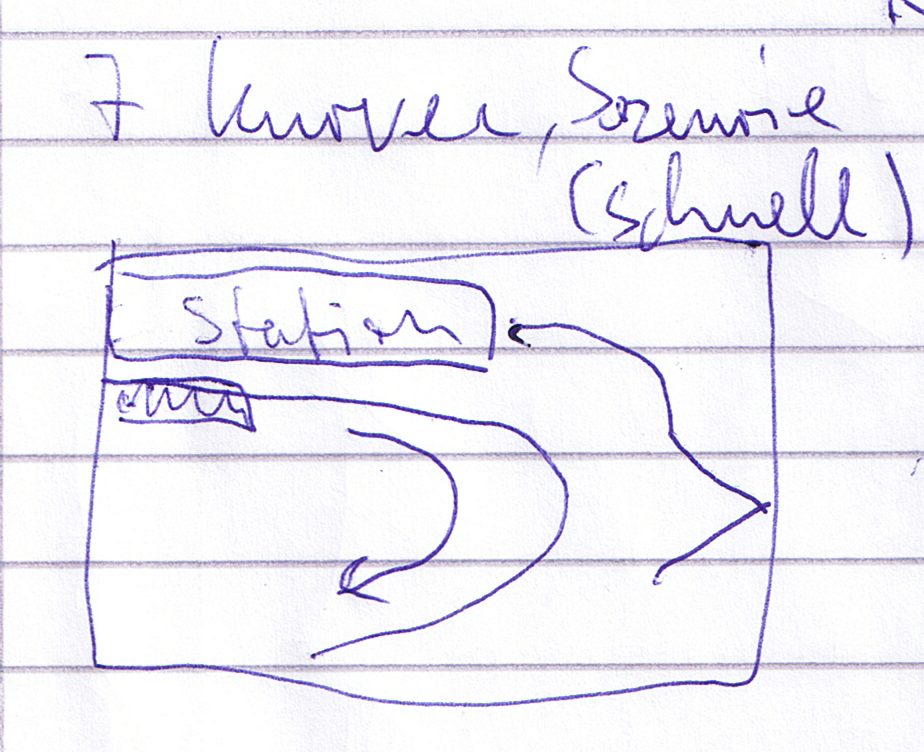 7 Kurven, Szenerie
(schnell)
Station